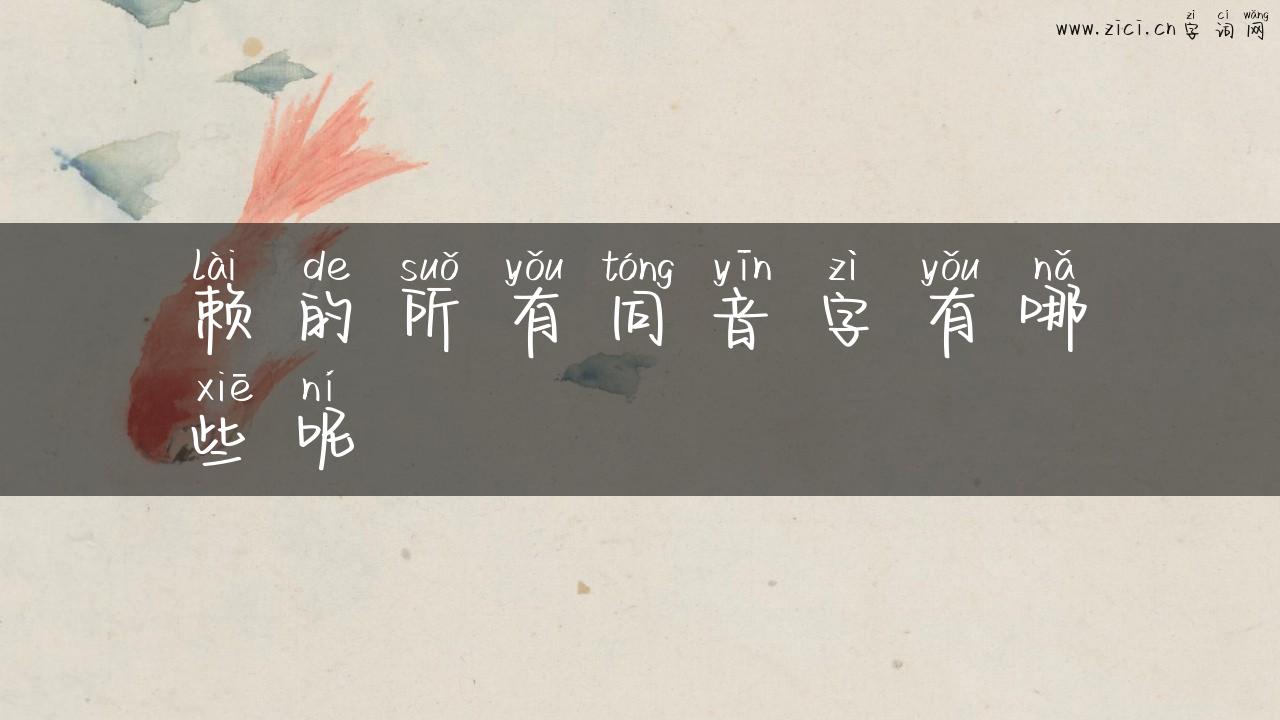 zì cí wǎng
www.zici.cn 字词网
lài de suǒ yǒu tóng yīn zì yǒu nǎ
赖的所有同音字有哪
xiē ní
些呢